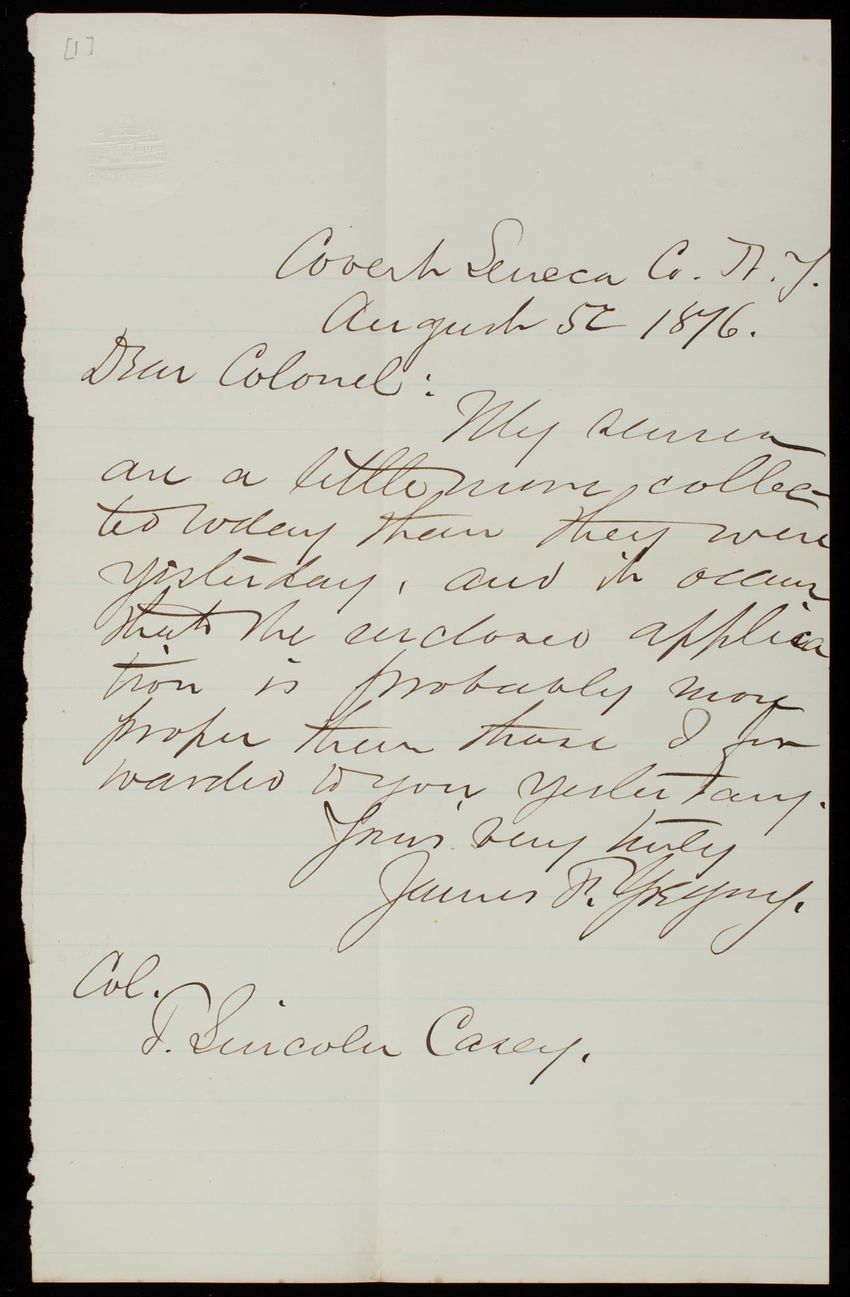 [1]
CONGRESS
Covert Seneca Co. N. Y.
August 5th 1876.
Dear Colonel:
My senses
are a little more collec-
ted today than they were
yesterday, and it occurs
that the enclosed applica
tion is probably more
proper than those I for
warded to you yesterday.
Yours very truly
James F. Gregory.
Col.
T. Lincoln Casey.